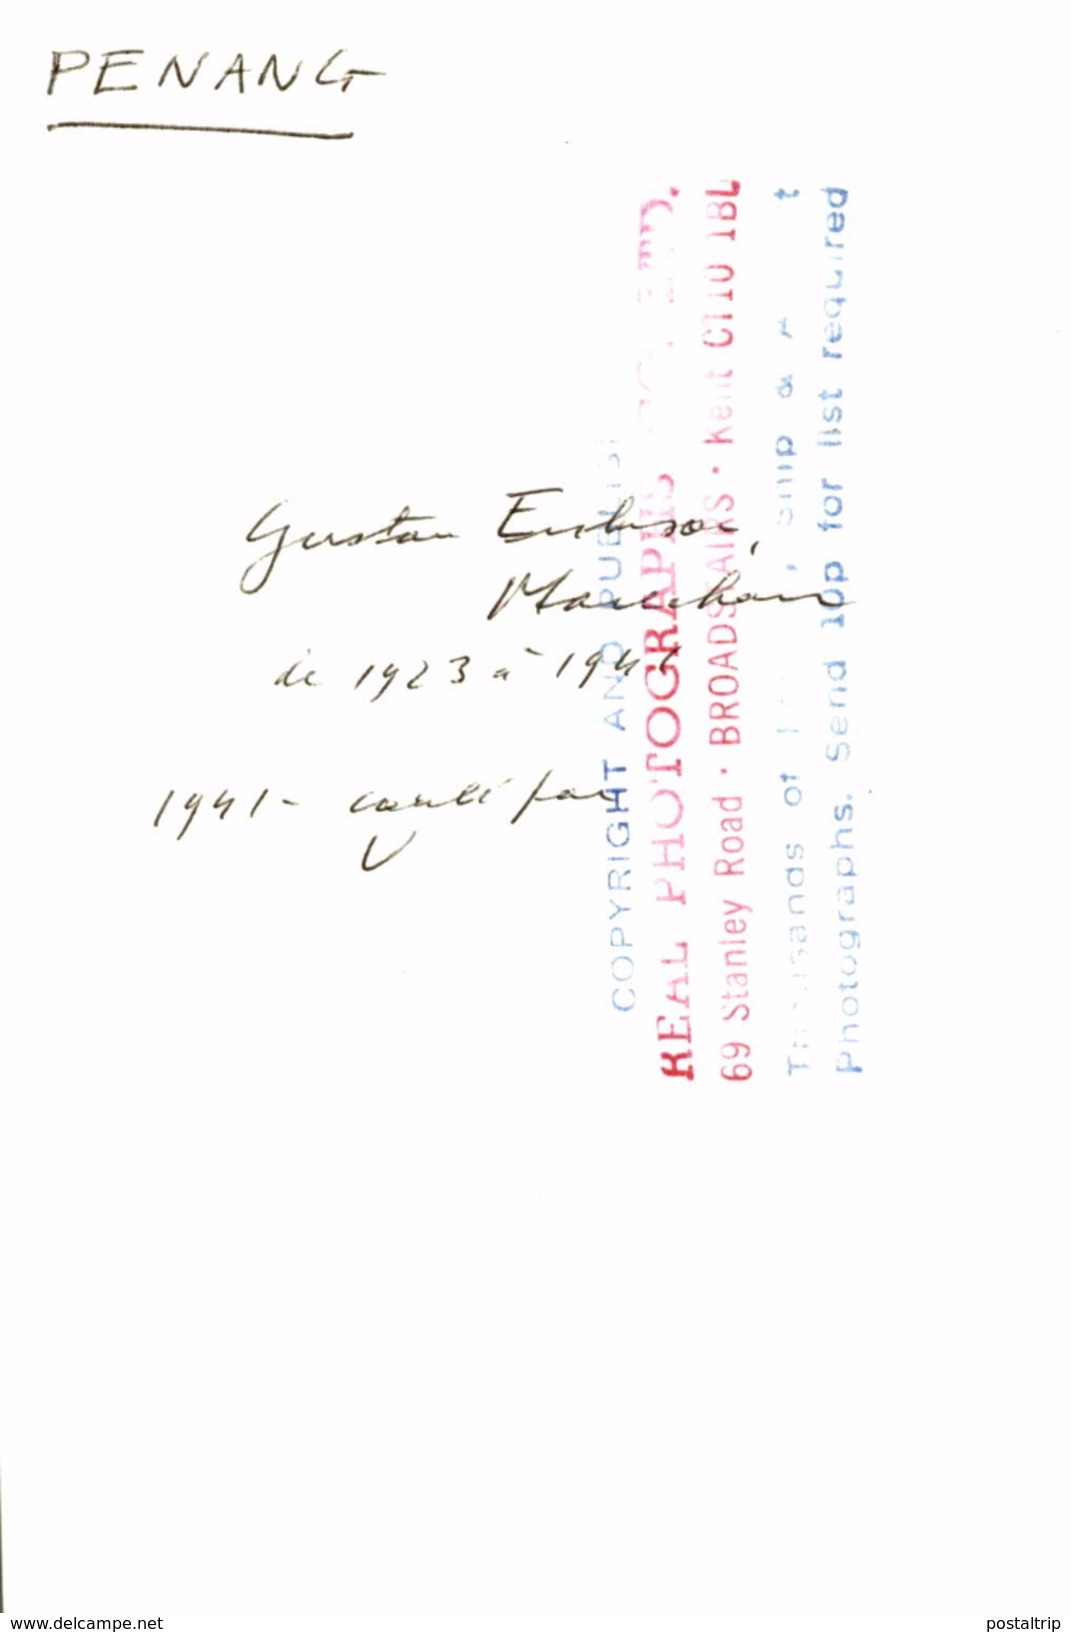 PENANG
Gustav Erikson,
Mariehamn
de 1923 à 1941
1941 - coulé par
COPYRIGHT AND
REAL PHOTOGRAPHS CO. LTD.
69 Stanley Road · BROADSTAIRS · Kent CT10 1BL
Thousands of Ship &
Photographs. Send 10p for list required
www.delcampe.net
postaltrip